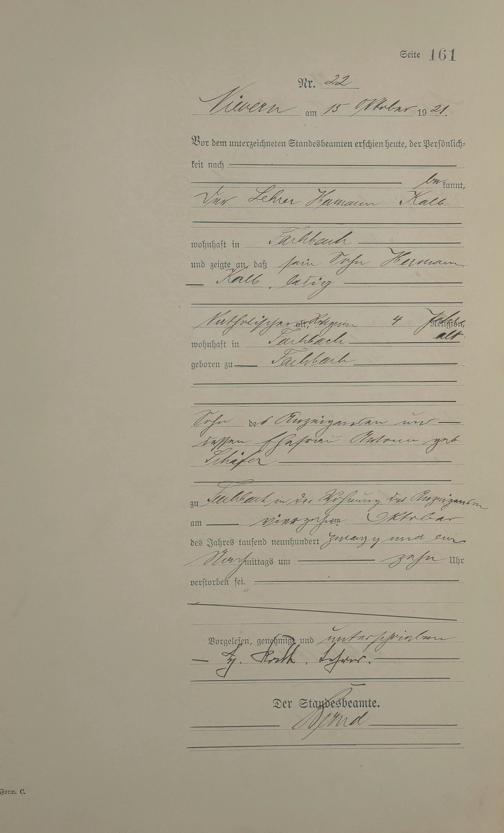 Seite 161
Nr. 22
Nievern am 15 Oktober 1921.
Vor dem unterzeichneten Standesbeamten erschien heute, der Persönlich-
keit nach
be kannt,
Der Lehrer Hermann Kalb
wohnhaft in Fachbach
und zeigte an, daß sein Sohn Hermann
Kalb, ledig
Katholischer Religion 4 Jahre
alt
wohnhaft in Fachbach
geboren zu Fachbach
Sohn des Anzeigenden und
dessen Ehefrau Antonie geb
Schäfer
zu Fachbach in der Wohnung des Anzeigenden
am vierzehn Oktober
des Jahres tausend neunhundert zwanzig und ein
Nachmittags um zehn Uhr
verstorben sei.
Vorgelesen, genehmigt und unterschrieben
H. Kalb, Lehrer.
Der Standesbeamte.
Form. C.